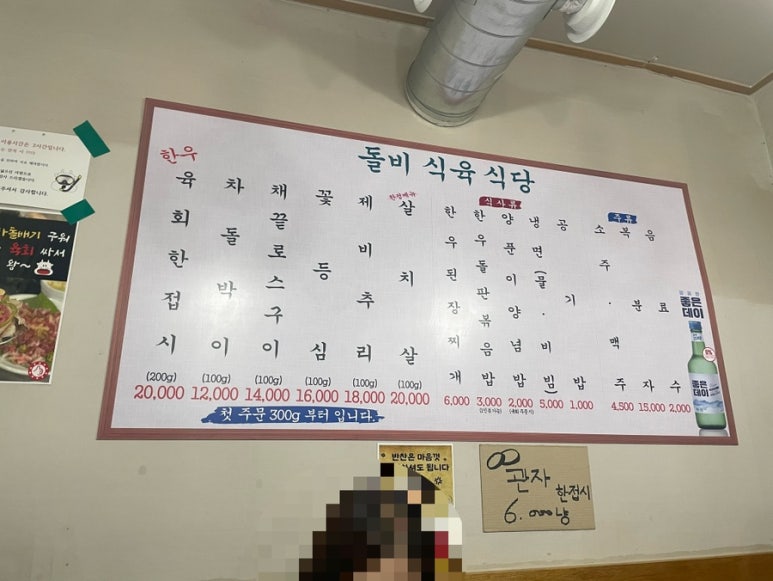 돌비 식육 식당
한우
육회한접시 (200g) 20,000
차돌박이 (100g) 12,000
채끝로스구이 (100g) 14,000
꽃등심 (100g) 16,000
제비추리 (100g) 18,000
살치살 (100g) 20,000
첫 주문 300g 부터 입니다.
식사류
한우된장찌개 6,000
한우돌판볶음밥 3,000
양푼이양념밥 2,000
냉면(물·비빔) 5,000
공기밥 1,000
주류
소주·맥주 4,500
복분자 15,000
음료수 2,000
좋은
데이
좋은
데이
구워
육회 싸서
왕~
감사합니다.
반찬은 마음껏
도 됩니다
관자 한접시
6.000냥